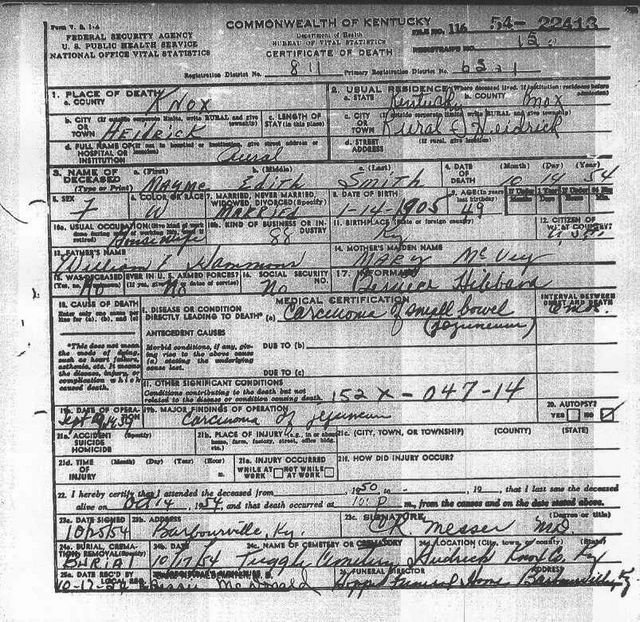 Form V. S. 1-A
COMMONWEALTH OF KENTUCKY
FILE NO. 116 54-22413
FEDERAL SECURITY AGENCY
U. S. PUBLIC HEALTH SERVICE
NATIONAL OFFICE VITAL STATISTICS
Department of Health
BUREAU OF VITAL STATISTICS
CERTIFICATE OF DEATH
REGISTRAR'S NO.
Registration District No. 811 Primary Registration District No. 6521
1. PLACE OF DEATH
a. COUNTY KNOX
2. USUAL RESIDENCE (Where deceased lived. If institution: residence before admission)
a. STATE Kentucky b. COUNTY Knox
b. CITY (If outside corporate limits, write RURAL and give township)
OR TOWN HEIDRICK
c. LENGTH OF STAY (in this place)
c. CITY (If outside corporate limits, write RURAL and give township)
OR TOWN Rural Heidrick
d. FULL NAME OF (If not in hospital or institution, give street address or location)
HOSPITAL OR INSTITUTION Rural
d. STREET ADDRESS (If rural, give location)
3. NAME OF DECEASED (Type or Print)
a. (First) Nayme b. (Middle) Edith c. (Last) Smith
4. DATE OF DEATH (Month) (Day) (Year) 10 14 54
5. SEX F
6. COLOR OR RACE W
7. MARRIED, NEVER MARRIED, WIDOWED, DIVORCED (Specify) MARRIED
8. DATE OF BIRTH 1905
9. AGE (In years last birthday) 49
If Under 1 Year If Under 24 Hrs.
10a. USUAL OCCUPATION (Give kind of work done during most of working life, even if retired) Housewife
10b. KIND OF BUSINESS OR INDUSTRY 88
11. BIRTHPLACE (State or foreign country) Ky
12. CITIZEN OF WHAT COUNTRY?
13. FATHER'S NAME William E Hammons
14. MOTHER'S MAIDEN NAME MARY McVey
15. WAS DECEASED EVER IN U.S. ARMED FORCES? No No
16. SOCIAL SECURITY NO. No
17. INFORMANT Berniece Hibbard
18. CAUSE OF DEATH
Enter only one cause per line for (a), (b), and (c)
MEDICAL CERTIFICATION
INTERVAL BETWEEN ONSET AND DEATH
I. DISEASE OR CONDITION DIRECTLY LEADING TO DEATH* (a) Carcinoma of small bowel
(jejuneum)
*This does not mean the mode of dying, such as heart failure, asthenia, etc. It means the disease, injury, or complication which caused death.
ANTECEDENT CAUSES
Morbid conditions, if any, giving rise to the above cause (a) stating the underlying cause last.
DUE TO (b)
DUE TO (c)
II. OTHER SIGNIFICANT CONDITIONS
Conditions contributing to the death but not related to the disease or condition causing death.
152X-047-14
19a. DATE OF OPERATION
19b. MAJOR FINDINGS OF OPERATION
Carcinoma of jejuneum
20. AUTOPSY?
YES NO
21a. ACCIDENT SUICIDE HOMICIDE (Specify)
21b. PLACE OF INJURY (e.g., in or about home, farm, factory, street, office bldg., etc.)
21c. (CITY, TOWN, OR TOWNSHIP) (COUNTY) (STATE)
21d. TIME OF INJURY (Month) (Day) (Year) (Hour)
21e. INJURY OCCURRED
WHILE AT WORK NOT WHILE AT WORK
21f. HOW DID INJURY OCCUR?
22. I hereby certify that I attended the deceased from , 1950 to - , 19 , that I last saw the deceased
alive on Oct 14, 1954 and that death occurred at m., from the causes and on the date stated above.
23a. DATE SIGNED 10/15/54
23b. ADDRESS Barbourville, Ky
23c. SIGNATURE (Degree or title) Messer MD
24a. BURIAL, CREMATION, REMOVAL (Specify) BURIAL
24b. DATE 10/17/54
24c. NAME OF CEMETERY OR CREMATORY Tuggle Cemetery
24d. LOCATION (City, town, or county) (State) Heidrick Knox Co. Ky
25a. DATE REC'D BY LOCAL REG. 10-17-54
McDonald
FUNERAL DIRECTOR ADDRESS
Hopper Funeral Home Barbourville, Ky